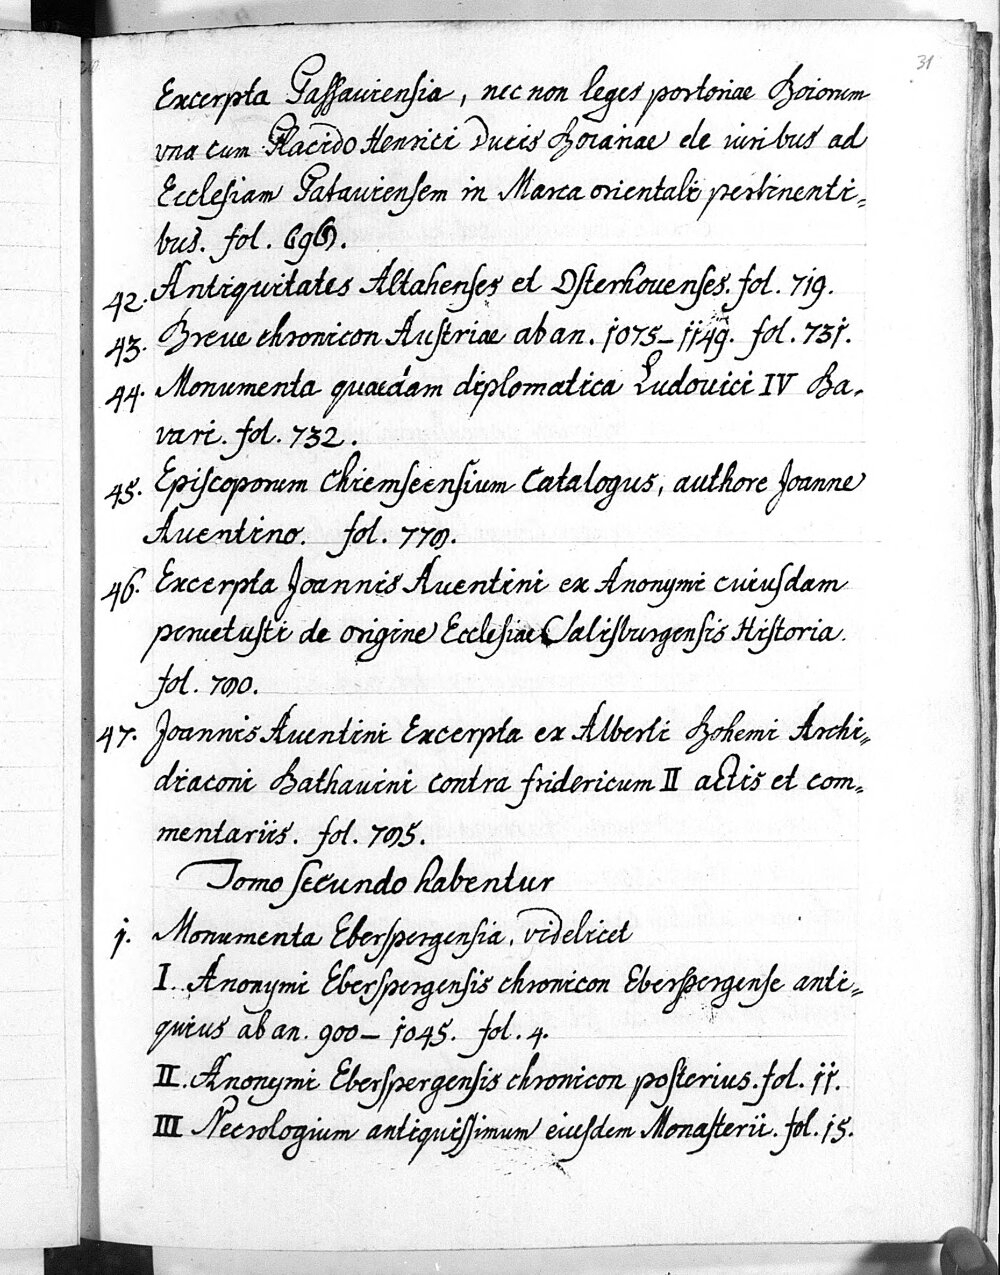 31
Excerpta Passauiensia, nec non leges portoriae Boiorum
vna cum Placido Henrici Ducis Boiariae de iuribus ad
Ecclesiam Patauiensem in Marca orientali pertinenti-
bus. fol. 696.
42. Antiquitates Altahenses et Osterhouenses. fol. 719.
43. Breue chronicon Austriae ab an. 1075–1149. fol. 731.
44. Monumenta quaedam diplomatica Ludouici IV Ba-
vari. fol. 732.
45. Episcoporum Chiemseensium Catalogus, authore Joanne
Auentino. fol. 779.
46. Excerpta Joannis Auentini ex Anonymi cuiusdam
peruetusti de origine Ecclesiae Salisburgensis Historia.
fol. 790.
47. Joannis Auentini Excerpta ex Alberti Bohemi Archi-
diaconi Bathauini contra fridericum II actis et com-
mentariis. fol. 795.
Tomo secundo habentur
1. Monumenta Eberspergensia, videlicet
I. Anonymi Eberspergensis chronicon Eberspergense anti-
quius ab an. 900– 1045. fol. 4.
II. Anonymi Eberspergensis chronicon posterius. fol. 11.
III Necrologium antiquissimum eiusdem Monasterii. fol. 15.